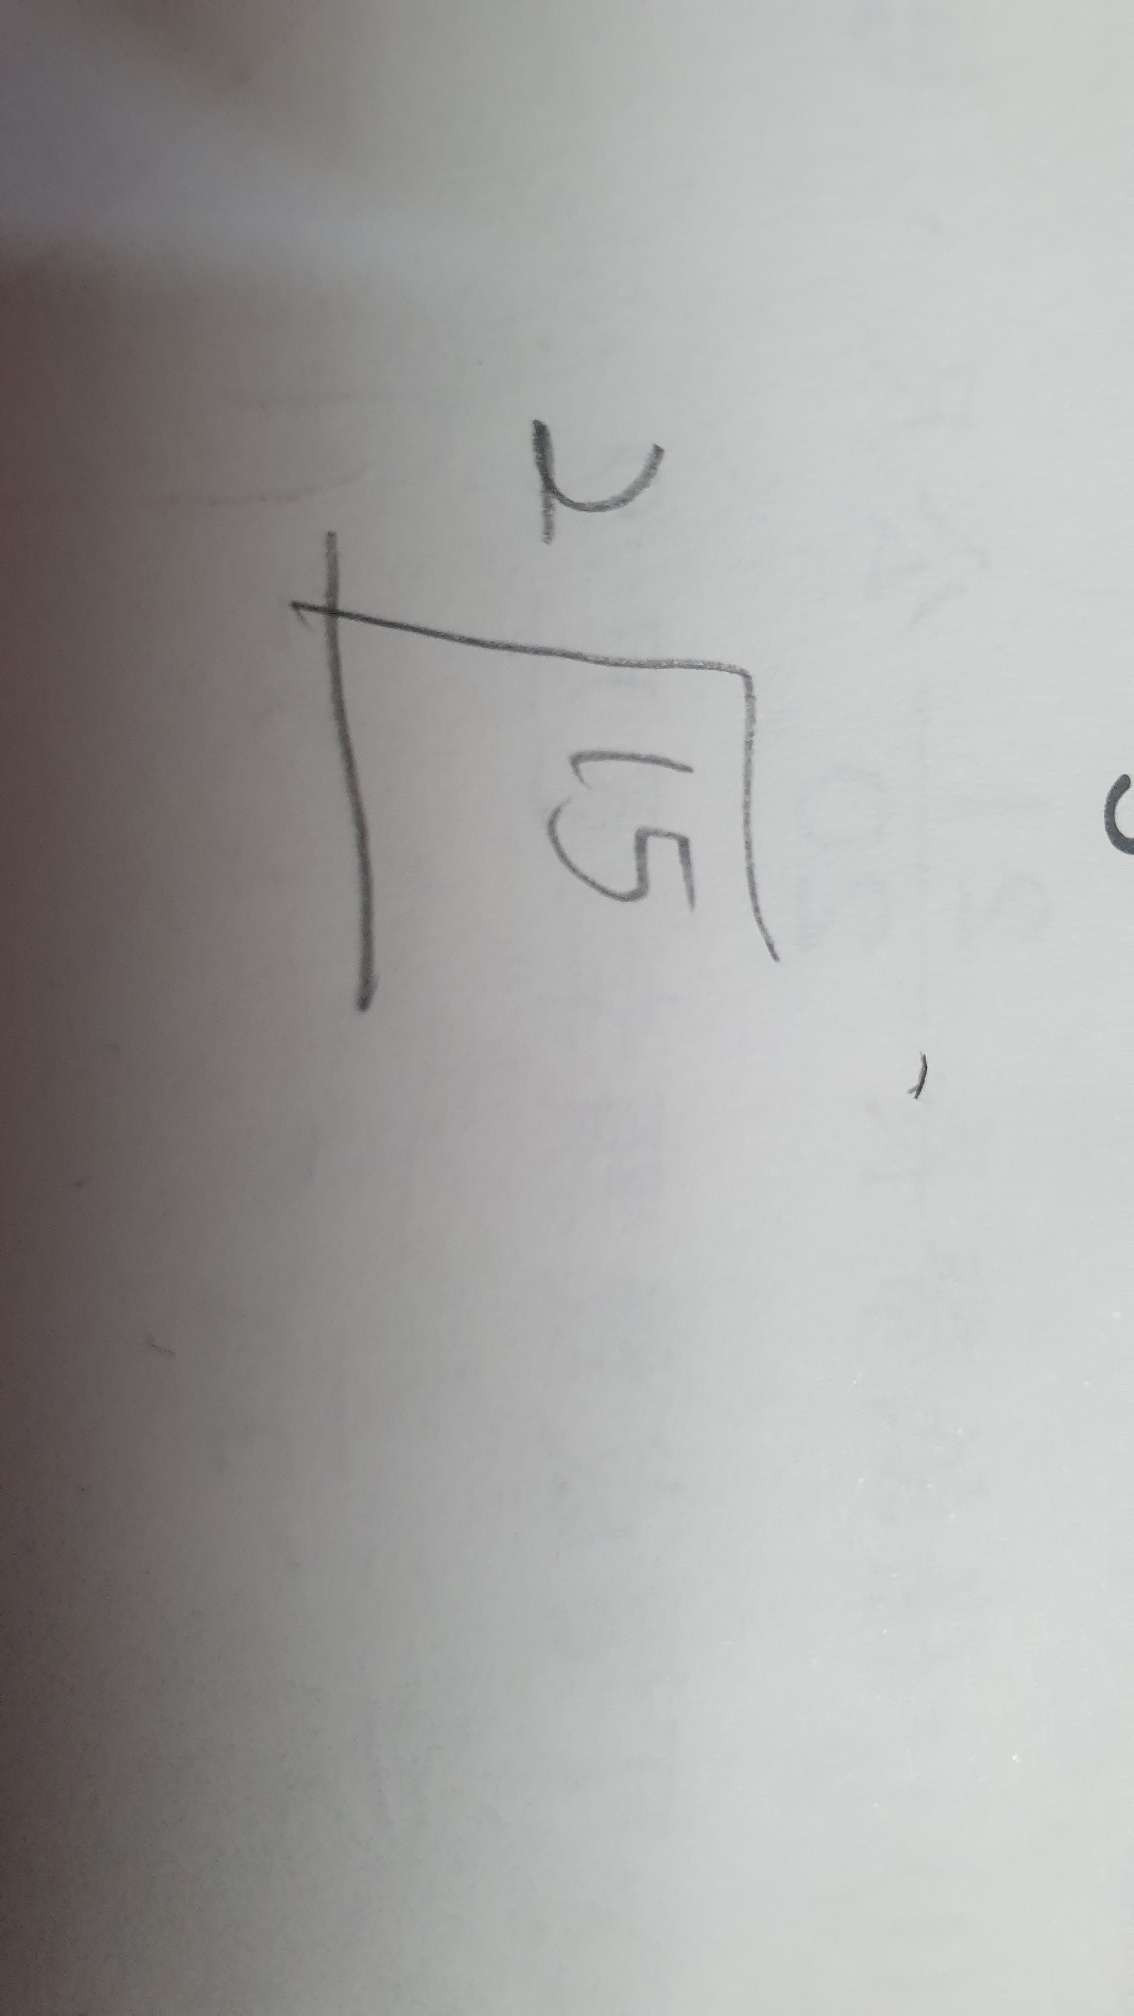 2 15